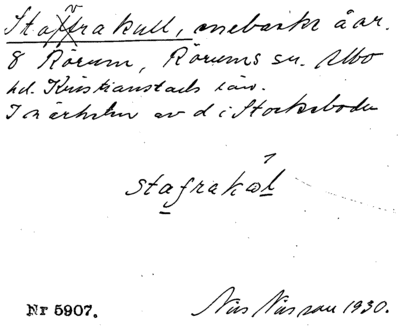 Stavrakull, enebackr å ar.
8 Rörum, Rörums sn. Albo
hd. Kristianstads län.
I närheten av d i Stocksboda
stafrakøl
Nr 5907.
Nils Nilsson 1930.